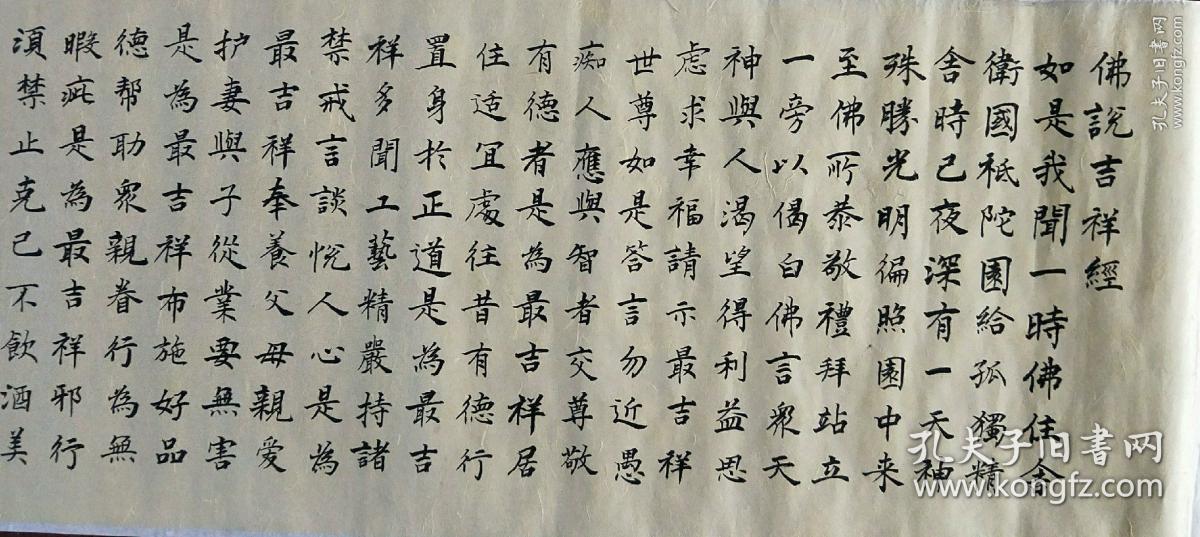 佛說吉祥經
如是我聞一時佛住舍
衛國祇陀園給孤獨精
舍時已夜深有一天神
殊勝光明徧照園中来
至佛所恭敬禮拜站立
一旁以偈白佛言衆天
神與人渴望得利益思
慮求幸福請示最吉祥
世尊如是答言勿近愚
痴人應與智者交尊敬
有德者是為最吉祥居
住适宜處往昔有德行
置身於正道是為最吉
祥多聞工藝精嚴持諸
禁戒言談悅人心是為
最吉祥奉養父母親愛
护妻與子從業要無害
是為最吉祥布施好品
德帮助衆親眷行為無
暇疵是為最吉祥邪行
須禁止克己不飲酒美
孔夫子旧书网
www.kongfz.com
孔夫子旧书网
www.kongfz.com